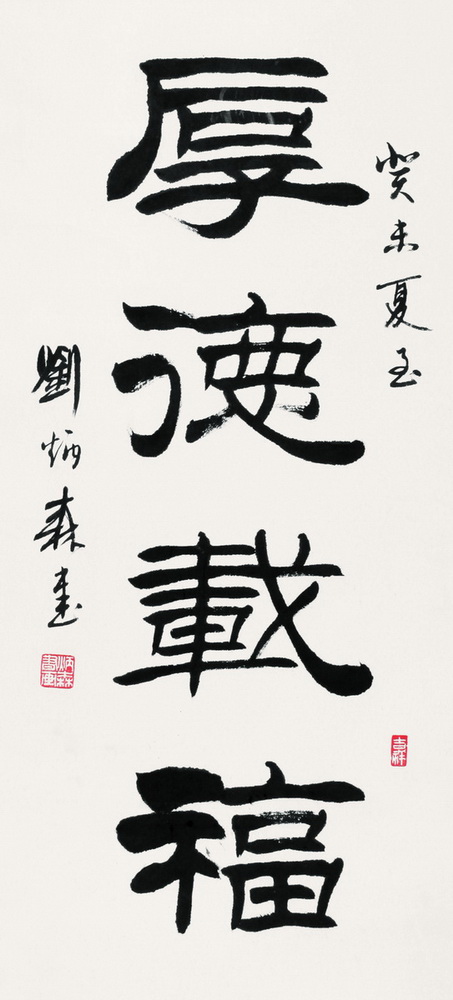 癸未夏至
厚德載福
劉炳森書
炳森書畫
吉祥